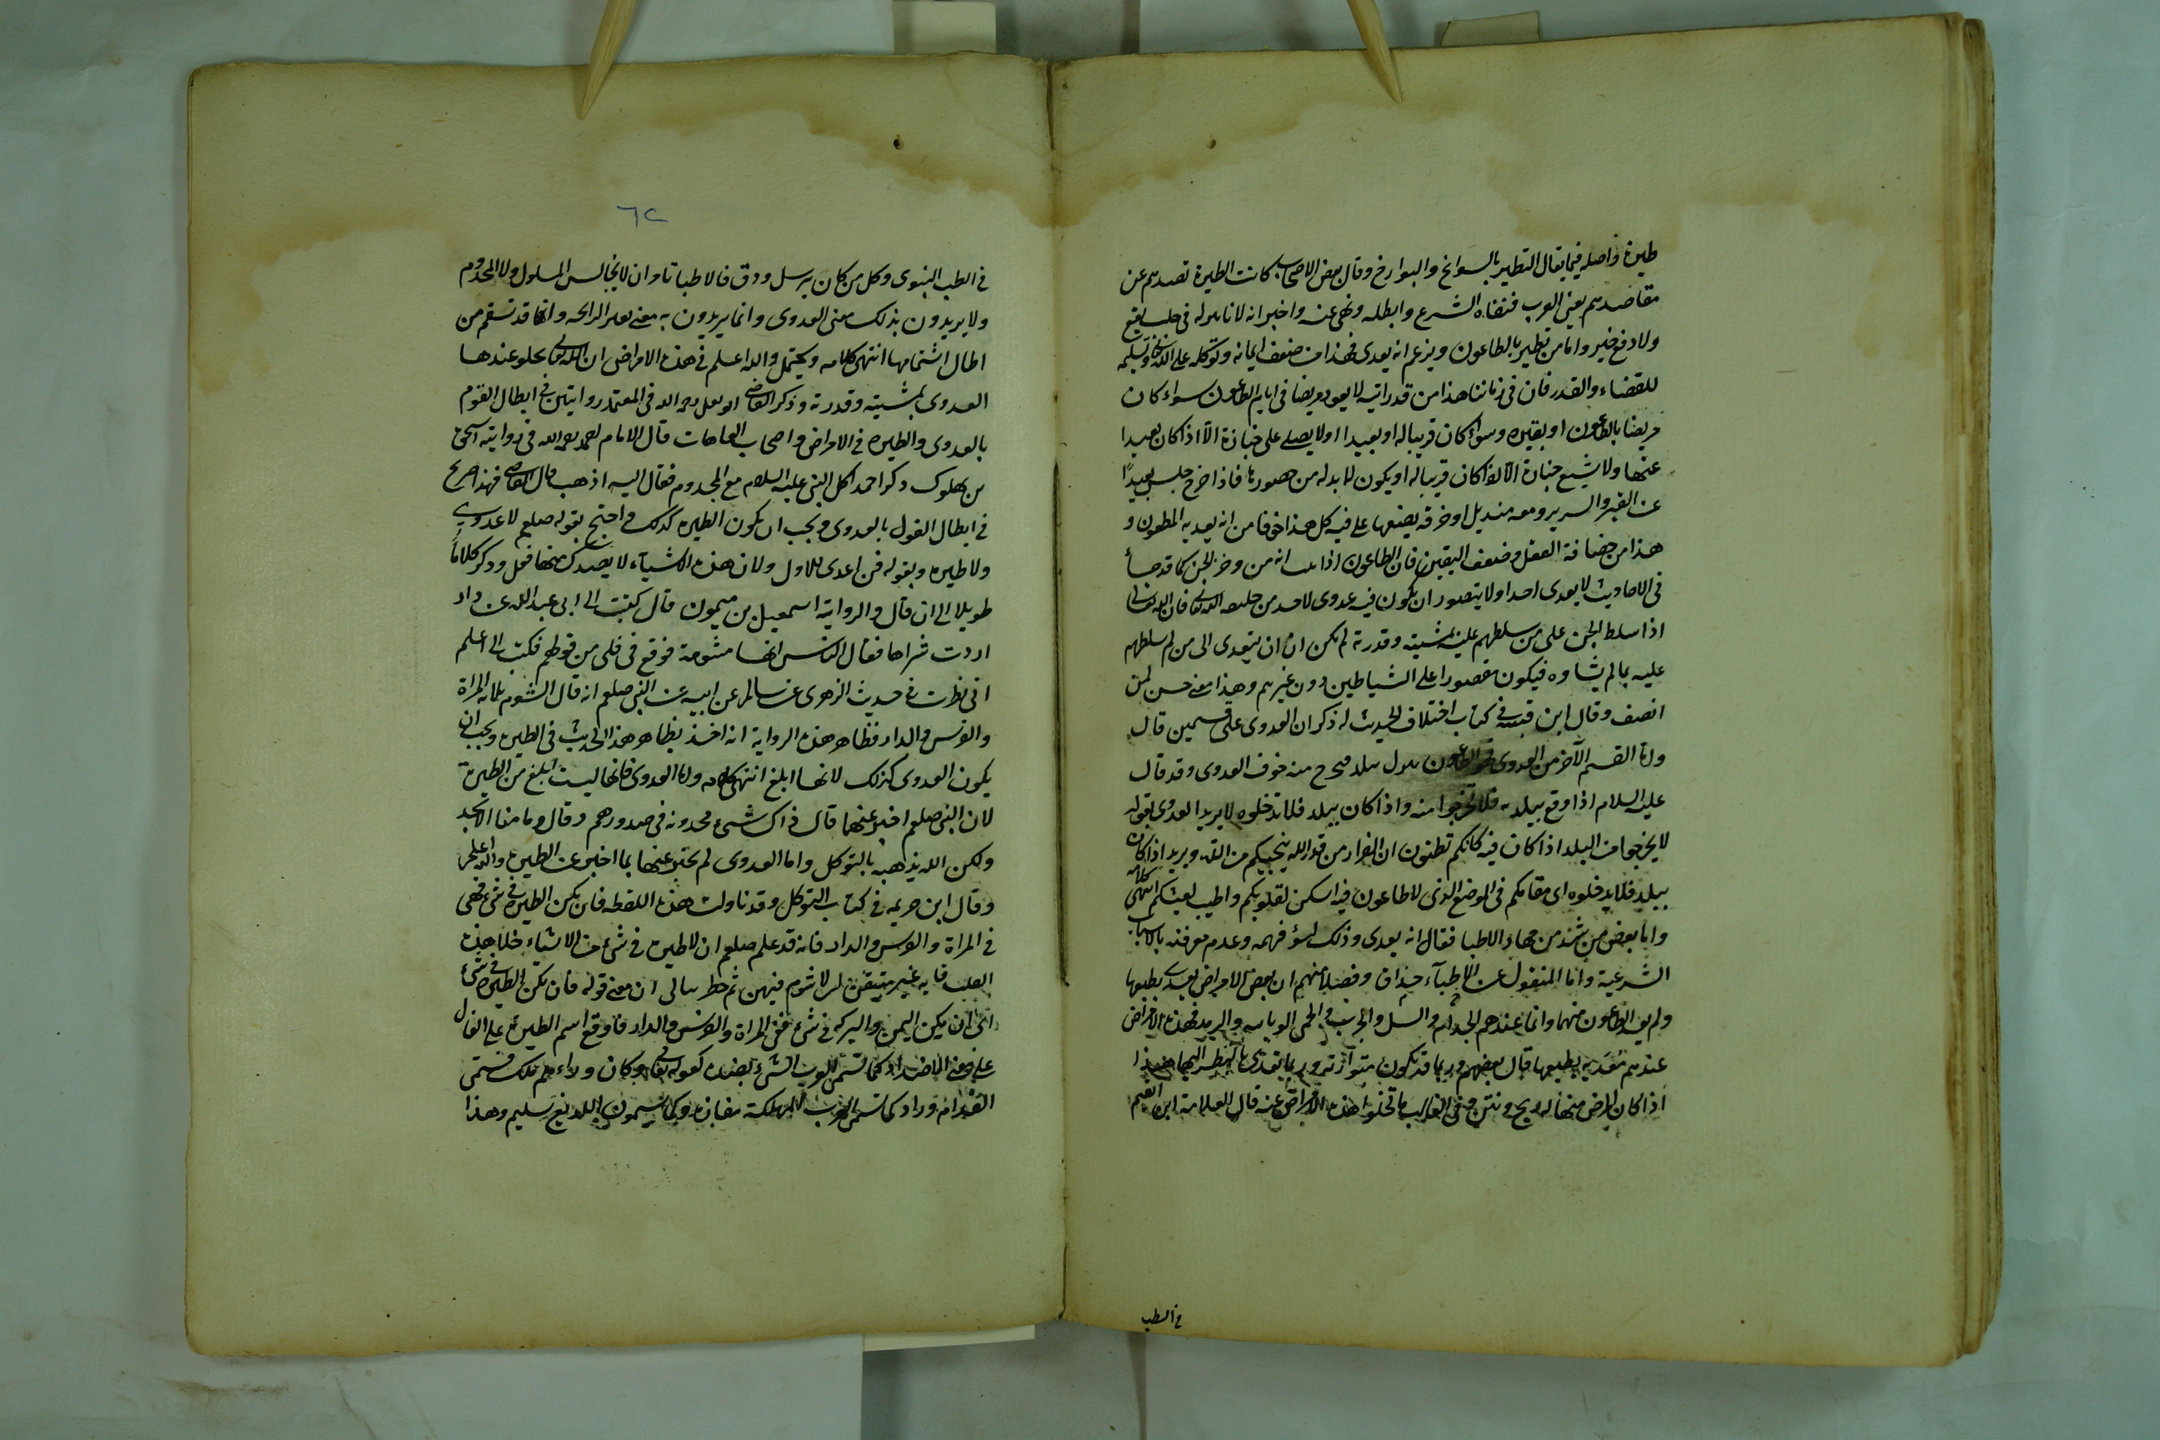 طيرة واصله فيما يقال التطير بالسوانح والبوارح وقال بعض الاصحاب كانت الطيرة تصدهم عن
مقاصدهم يعني العرب فنفاه الشرع وابطله ونهى عنه واخبر انه لا تاثير له في جلب نفع
ولا دفع ضير واما من تطير بالطاعون ويزعم انه يعدى فهذا من ضعف ايمانه وتوكله على الله تعالى وتسليمه
للقضاء والقدر فان في زماننا هذا من قد رايته لا يعود مريضا في ايام الطاعون سواء كان
مريضا بالطاعون او بغيره وسواء كان قريبا له او بعيدا اولا يصلى على جنازة الا اذا كان بعيدا
عنها ولا يشيع جنازة الا لو كان قريبا له او يكون لا بد له من حضورها فاذا خرج جلس بعيدًا
عن القبر والسرير ومعه منديل او خرقه يضعها على فيه كل هذا خوفا من انه يعديه المطعون و
هذا من خفة العقل وضعف اليقين فان الطاعون اذا انه من وخز الجن كما قد جاء
في الاحاديث لا يعدى احدا ولا يتصور ان يكون فيه عدوى لاحد من خليقه الله تعالى فان الله تعالى
اذا سلط الجن على من سلطهم عليه بمشيته وقدرته لم يكن ان يتعدى الى من لم يسلطهم
عليه بما لم يشاوه فيكون مقصورا على الشياطين دون غيرهم وهذا معنى حسن لمن
انصف وقال ابن قتيبه في كتاب اختلاف الحديث له ذكر ان العدوى على قسمين قال
واما القسم الآخر من العدوى فهو الطاعون ينزل ببلد فيخرج منه خوف العدوى وقد قال
عليه السلام اذا وقع ببلد به فلا تخرجوا منه واذا كان ببلد فلا تدخلوه لا يريد العدوى بقوله
لا يخرجوا من البلد اذا كان فيه كانكم تظنون ان الفرار من قدر الله ينجيكم من الله ويريد اذا كان
ببلد فلا يدخلوه اى مقامكم في الموضع الذى لا طاعون فيه اسكن لقلوبكم واطيب لعيشكم انتهى كلامه
واما بعض من شذ من جهله الاطبا فقال انه يعدى وذلك لسوء فهمه وعدم معرفته بالاسباب
الشرعية واما المنقول عن الاطباء حذاق وفضلا منهم ان بعض الامراض يعدى بطبعها
ولم يعد الطاعون منها وانما عندهم الجذام والسل والجرب والحمى الوبائيه والبرص فهذه الامراض
عندهم معديه بطبعها قال بعضهم وربما قد يكون متوارثه وربما يتعدى بالنظر اليها هذا
اذا كان المرض منها له ريح ونتن وفى الغالب ما تخلوا هذه الامراض عنه قال العلامة ابن القيم
في الطب
٦٢
في الطب النبوى وكل من كان به سل ودق فالاطبا تاوان لا يجالس المسلول ولا المجذوم
ولا يريدون بذلك معنى العدوى وانما يريدون به معنى تغير الرايحه وانها قد تسقم من
اطال اشتمامها انتهى كلامه ويحتمل والله اعلم في هذه الامراض ان الله تعالى يخلق عندها
العدوى بمشيته وقدرته وذكر القاضى ابو يعلى رحمه الله في المعتمد روايتين في ابطال القوم
بالعدوى والطيره في الامراض واصحاب العاهات قال الامام احمد رحمه الله في رواية اسحق
بن بهلوك ذكر احمد اكل النبي عليه السلام مع المجذوم فقال اليه اذهب قال القاضى فهذا صريح
في ابطال القول بالعدوى ويجب ان يكون الطيره كذلك واحتج بقوله صلعم لا عدوى
ولا طيره وبقوله فمن اعدى للاول ولان هذه الاشياء لا يصدك منها فعل وذكر كلامًا
طويلا الى ان قال والرواية اسمعيل بن ميمون قال كتبت الى ابي عبد الله عن دار
اردت شراها فقال الناس انها مشومة فوقع في قلبى من قولهم فكتب الى اعلم
انى نظرت في حديث الزهرى عن سالم عن ابيه عن النبي صلعم انه قال الشوم ثلاثه المراة
والفرس والدار فظاهر هذه الرواية انه اخذ بظاهر هذا الحديث في الطيره ويجب ان
يكون العدوى كذلك لانها ابلغ انتهى كلامه واما العدوى فانها ليست ابلغ من الطيرة
لان النبي صلعم اخبر عنها قال ذاك شىء محدونه في صدورهم وقال وما منا الا يجد
ولكن الله يذهبه بالتوكل واما العدوى لم يخبر عنها بما اخبر عن الطيره والله اعلم
وقال ابن خزيمه في كتاب التوكل وقد تاولت هذه اللفظه فان يكن الطيره في شىء فهى
في المراة والفرس والدار فانه قد علم صلعم ان لا طيره في شىء من الاشياء خلا هذه
الثلث فانه غير متيقن ان لا شوم فيهن ثم خطر ببالى ان معنى قوله فان تكن الطيره في شىء
اى ان يكن اليمن والبركه في شىء ففى المراة والفرس والدار فاوقع اسم الطيره على الفال
على معنى الاضداد كما تسمى العرب الشىء بضده كقوله تعالى وكان وراءهم ملك فتسمى
القدام وراء كما تسمى العرب المهلكة مفازه وكما يسمون اللديغ سليم وهذا